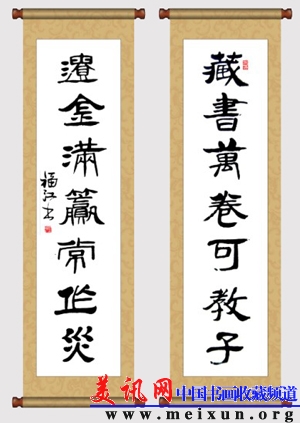 藏書萬卷可教子
遺金滿籯常作災
福江书
美讯网 中国书画收藏频道
www.meixun.org